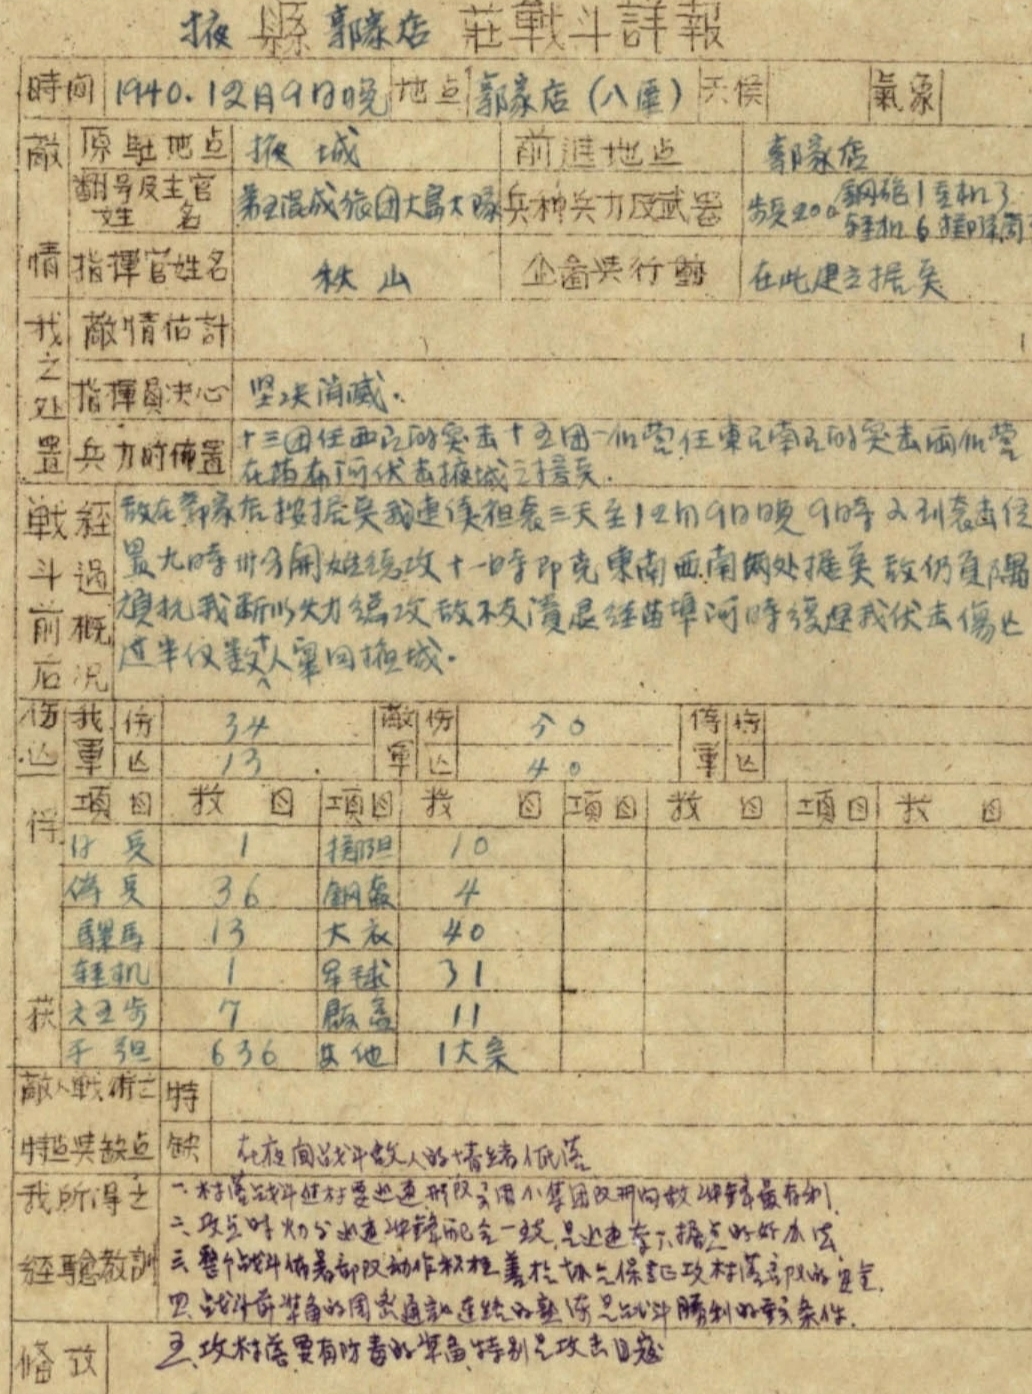 掖 縣 郭家店 莊戰斗詳報
時间 1940.12月9日晚 地点 郭家店(八區) 天候 氣象
敵情 原駐地点 掖城 前進地点 郭家店
翻号及主官姓名 第五混成旅团大島大隊 兵种兵力及武器 步兵200 鋼砲1 重机3
轻机6
指揮官姓名 秋山 企畣與行動 在此建立据点
我之处置 敵情估計
指揮員决心 坚决消滅.
兵力的佈置 十三团任西民的突击十五团一个营任東民南民的突击两个营
在苗布河伏击掖城之援兵.
戰斗前后經過概況 敌在郭家店按据点我連续袒袭三天至12月9日晚9時又到袭击位
置九時卅分開始總攻十一時即克東南西南個处据点敌仍負隅
頑抗我断以火力總攻敌不支潰退经苗埠河時後遭我伏击傷亡
过半仅数十人窜回掖城.
伤亡 我軍 伤 34 敵軍 伤 50 偽軍 伤
亡 13 亡 40 亡
俘获 項目 数目 項目 数目 項目 数目 項目 数目
日兵 1 10
偽兵 36 鋼盔 4
騾馬 13 大衣 40
轻机 1 31
大五步 7 飯盒 11
子弹 636 其他 1大条
敵人戰術之特点與缺点 特
缺 在夜间战斗敌人的情绪低落
我所得之經驗教訓 一.村落战斗进村要迅速形成多用小集团改形向敌冲鋒最有利.
二.攻点時火力分迅速冲鋒配合一致是迅速夺下据点的好办法
三.整个战斗佈署部队动作积极善於协仝保証攻村落部队的安全
四.战斗前準备的周密通訊连络的熟练是战斗勝利的重要条件.
備攷 五.攻村落要有防毒的準备特别是攻击日寇